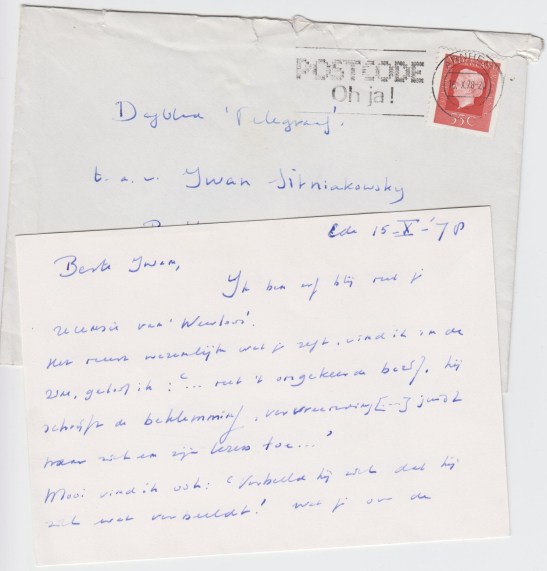 POSTCODE
Oh ja!
ARNHEM
55 c
Dagblad 'Telegraaf'.
t. a. v. Iwan Sitniakowsky
Ede 15-X-'78
Beste Iwan,
Ik ben erg blij met je
recensie van
Het meest wezenlijk wat je zegt, vind ik in de
zin, geloof ik: '... met 't omgekeerde bezig, hij
schrijft de beklemming, vervreemding [...] juist
naar zich en zijn lezers toe...'
Mooi vind ik ook: 'Verbeeldt hij zich dat hij
zich wat verbeeldt.' Wat je over de